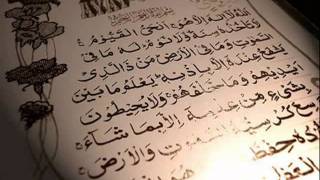 اَللهُ لَا اِلٰهَ اِلَّا هُوَ اَلْحَيُّ الْقَيُّومُ
لَا تَأْخُذُهُ سِنَةٌ وَلَا نَوْمٌ لَهُ مَا فِي
السَّمٰوٰتِ وَمَا فِي الْاَرْضِ مَنْ ذَا الَّذِي
يَشْفَعُ عِنْدَهُ اِلَّا بِاِذْنِهِ يَعْلَمُ مَا بَيْنَ
اَيْدِيهِمْ وَمَا خَلْفَهُمْ وَلَا يُحِيطُونَ
بِشَيْءٍ مِنْ عِلْمِهِ اِلَّا بِمَا شَاءَ
وَسِعَ كُرْسِيُّهُ السَّمٰوٰتِ وَالْاَرْضَ